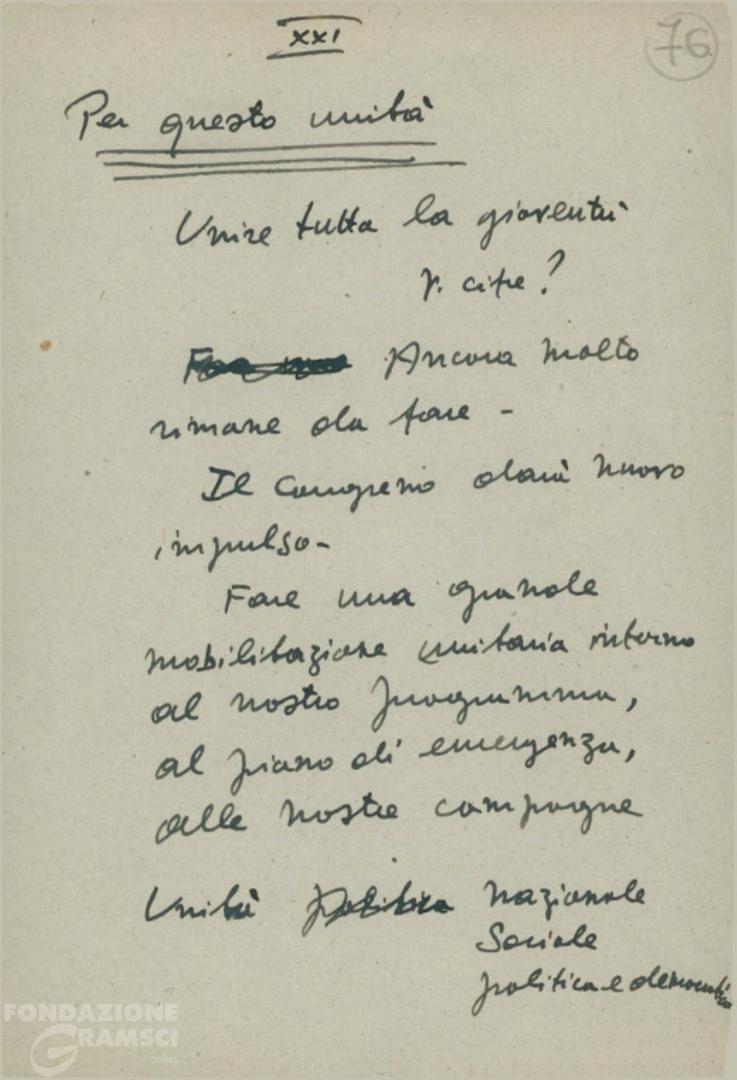 XXI
76
Per questo unità
Unire tutta la gioventù
V. cifre?
Ancora molto
rimane da fare -
Il Congresso darà nuovo
impulso -
Fare una grande
mobilitazione unitaria intorno
al nostro programma,
al piano di emergenza,
alle nostre campagne
Unità politica nazionale
Sociale
politica e democratica
FONDAZIONE
GRAMSCI
onlus